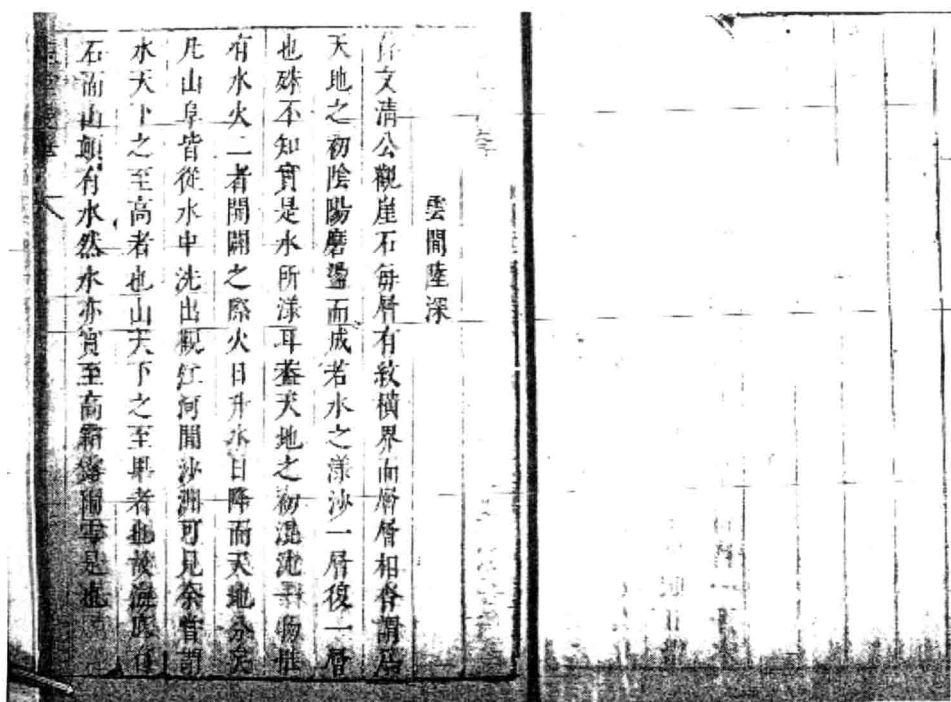 雲間陸深
文清公觀崖石每層有紋橫界而層層相沓謂爲
天地之初陰陽磨盪而成若水之漾沙一層復一層
也殊不知實是水所漾耳蓋天地之初混沌一物惟
有水火二者開闢之際火日升水日降而天地分矣
凡山阜皆從水中洗出觀江河間沙洲可見余嘗謂
水天下之至高者也山天下之至卑者也故海底有
石而山顛有水然水亦實至高霜露雨雪是也